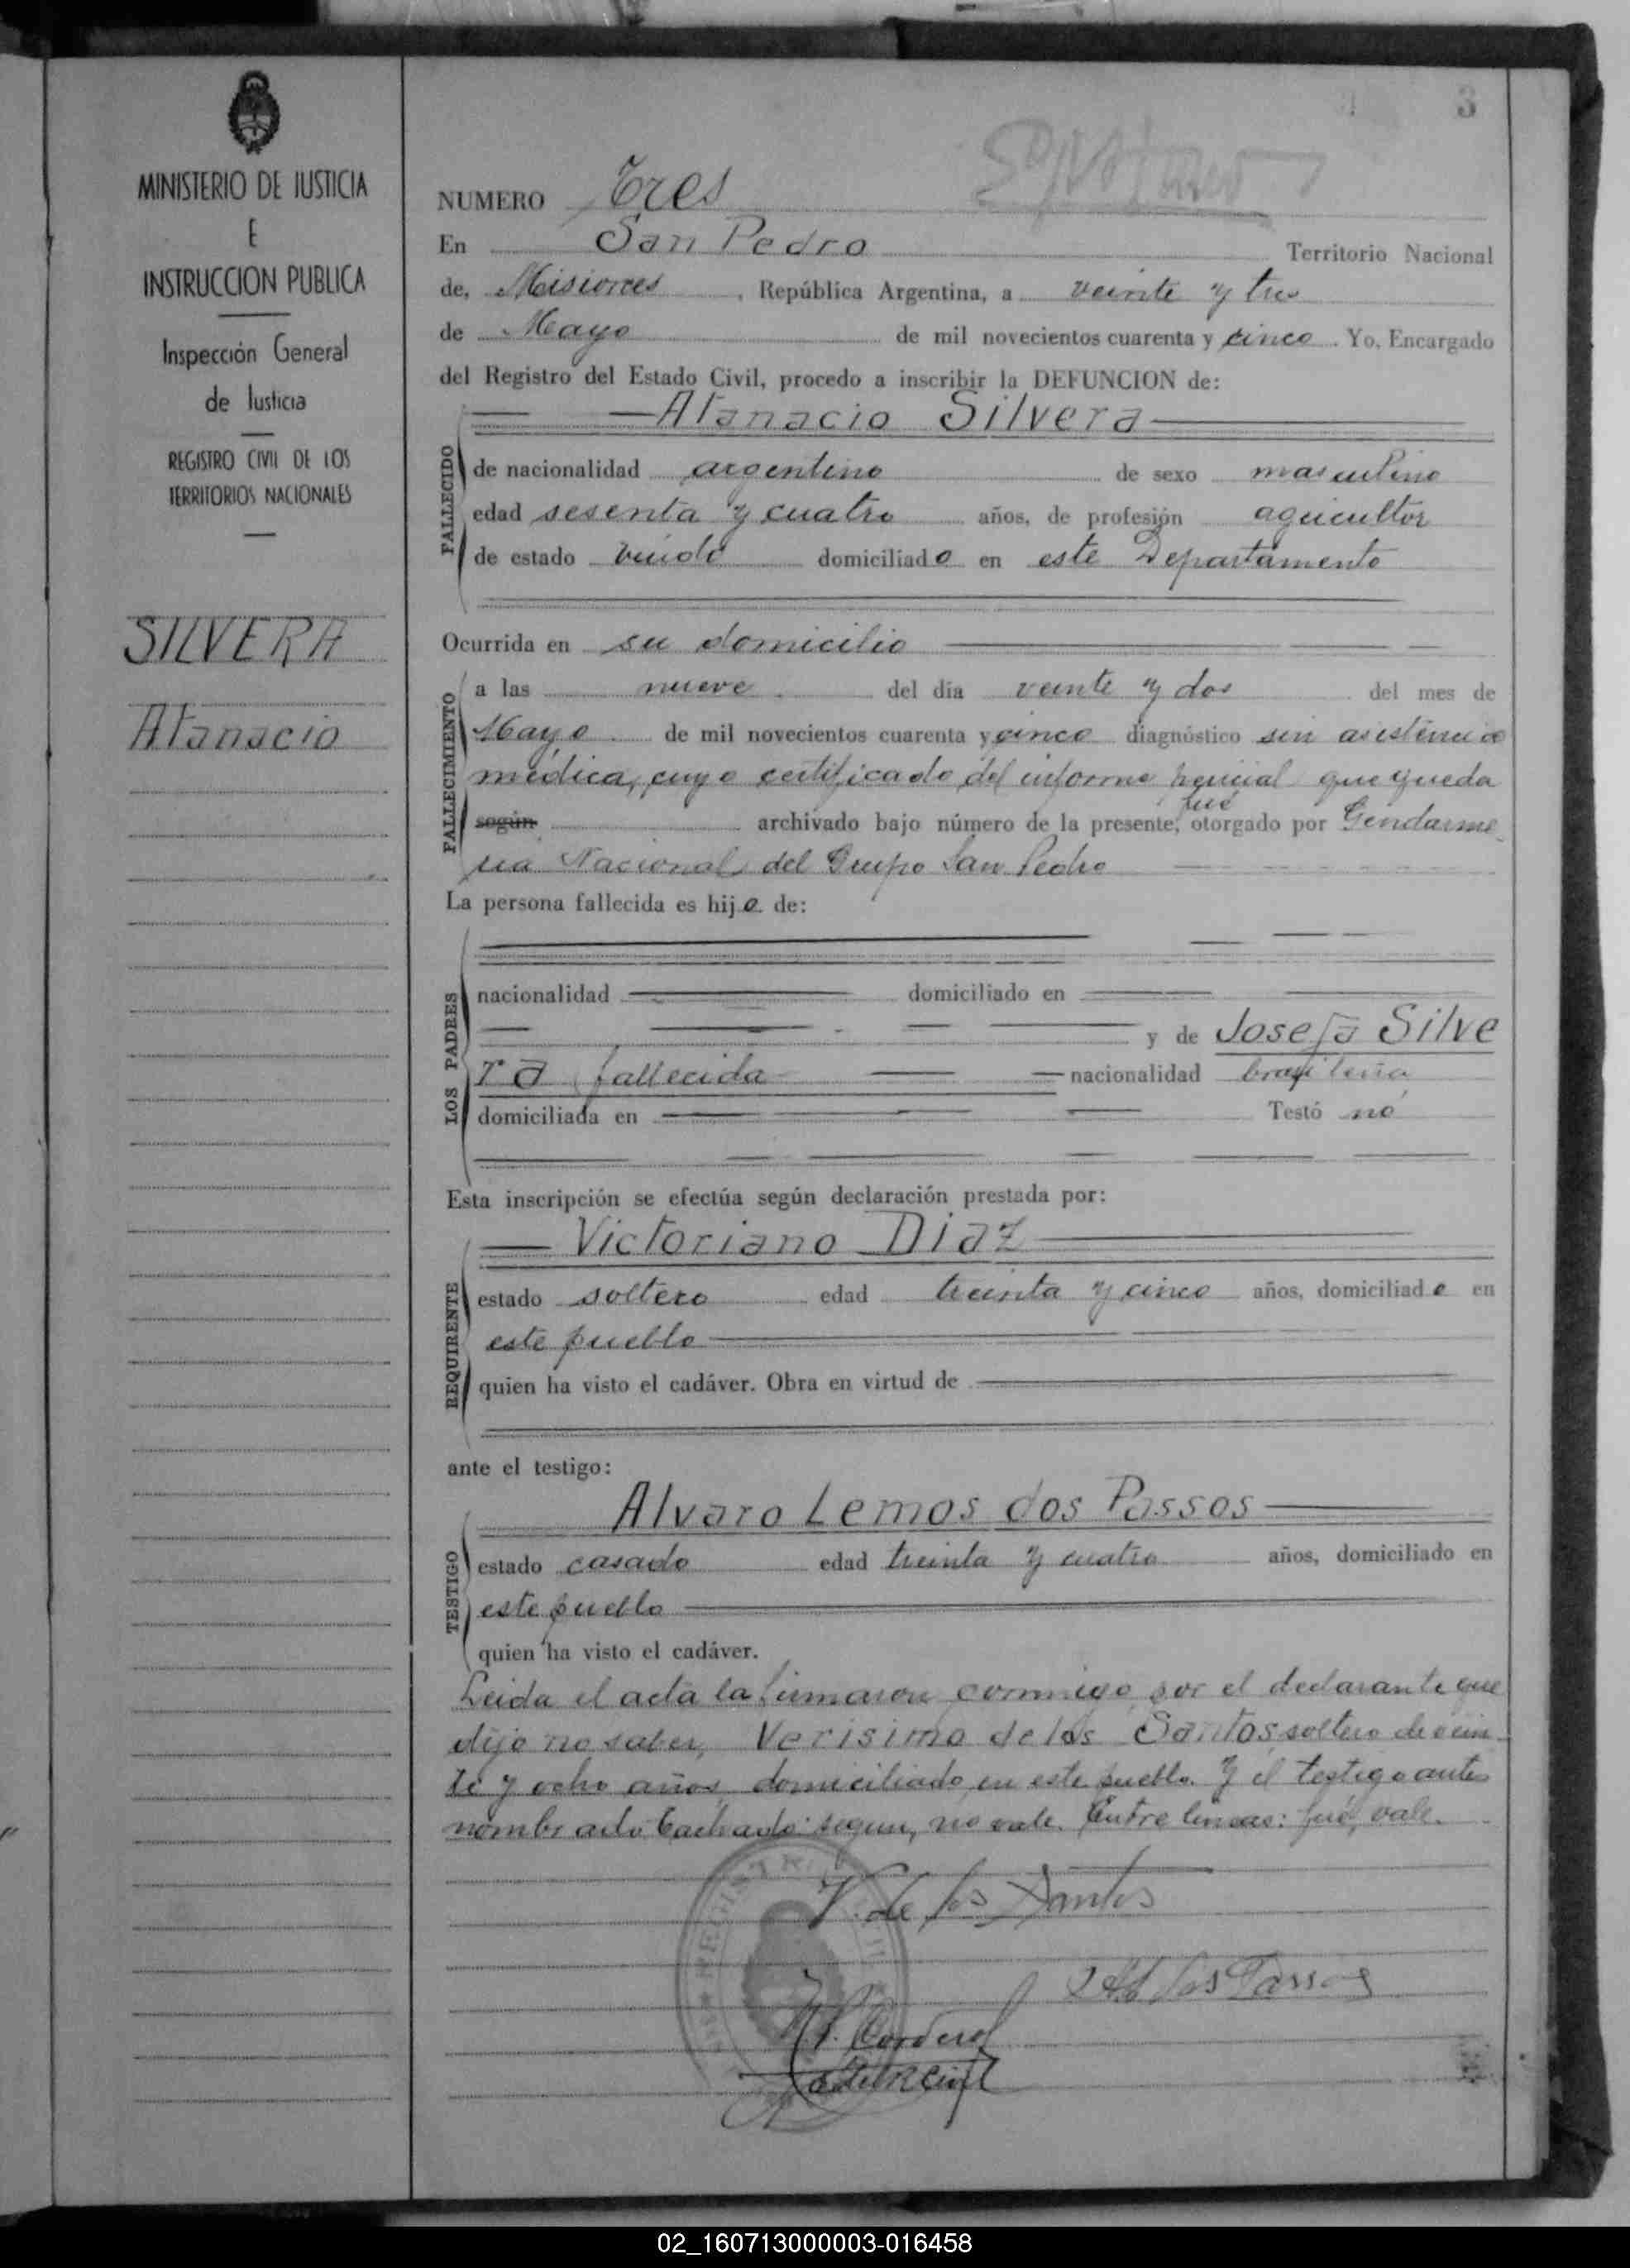 3
MINISTERIO DE JUSTICIA
E
INSTRUCCION PUBLICA
Inspección General
de Justicia
REGISTRO CIVIL DE LOS
TERRITORIOS NACIONALES
SILVERA
Atanacio
NUMERO Tres
En San Pedro Territorio Nacional
de, Misiones, República Argentina, a veinte y tres
de Mayo de mil novecientos cuarenta y cinco. Yo, Encargado
del Registro del Estado Civil, procedo a inscribir la DEFUNCION de:
Atanacio Silvera
FALLECIDO
de nacionalidad argentino de sexo masculino
edad sesenta y cuatro años, de profesión agricultor
de estado viudo domiciliado en este Departamento
Ocurrida en su domicilio
FALLECIMIENTO
a las nueve del dia veinte y dos del mes de
Mayo de mil novecientos cuarenta y cinco diagnóstico sin asistencia
médica, cuyo certificado del informe pericial que queda
según archivado bajo número de la presente, fué otorgado por Gendarme
ria Nacional del Grupo San Pedro
La persona fallecida es hijo de:
LOS PADRES
nacionalidad domiciliado en
y de Josefa Silve
ra fallecida nacionalidad brasileña
domiciliada en Testó nó
Esta inscripción se efectúa según declaración prestada por:
Victoriano Diaz
REQUIRENTE
estado soltero edad treinta y cinco años, domiciliado en
este pueblo
quien ha visto el cadáver. Obra en virtud de
ante el testigo:
Alvaro Lemos dos Passos
TESTIGO
estado casado edad treinta y cuatro años, domiciliado en
este pueblo
quien ha visto el cadáver.
Leida el acta la firmaron conmigo, por el declarante que
dijo no saber, Verisimo de los Santos soltero de vein-
te y ocho años domiciliado en este pueblo. Y el testigo antes
nombrado tachado: segun, no vale. Entre lineas: fué, vale.
V. de los Santos
dos Passos
Cordero
02_160713000003-016458